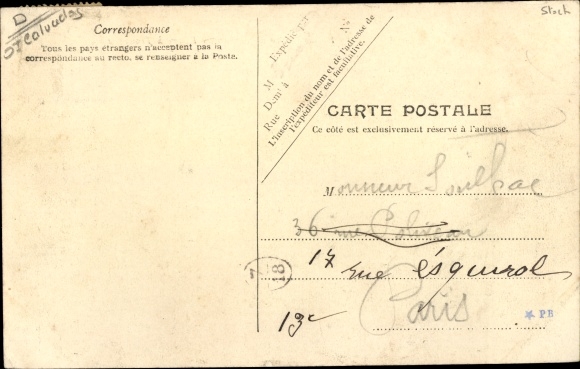 D
Calvados
Stoch
Correspondance
Tous les pays étrangers n'acceptent pas la
correspondance au recto, se renseigner à la Poste.
M Expédié par
Dem^t à
Rue N°
L'inscription du nom et de l'adresse de
l'expéditeur est facultative.
CARTE POSTALE
Ce côté est exclusivement réservé à l'adresse.
Monsieur Souilhac
36 rue
17 rue Esquirol
18
Paris
13e
PB